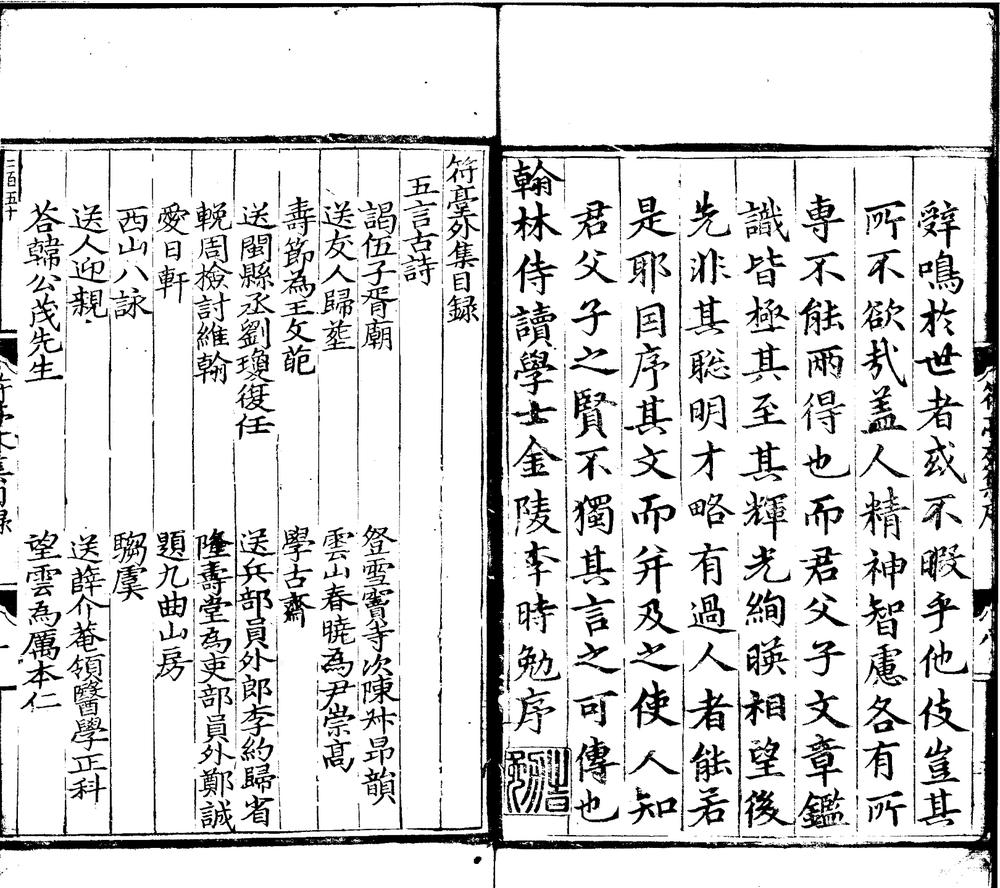 辤鳴於世者或不暇乎他伎豈其
所不欲㢤盖人精神智慮各有所
専不能兩得也而君父子文章鑑
識皆極其至其輝光絢暎相望後
先非其聡明才略有過人者能若
是耶因序其文而并及之使人知
君父子之賢不獨其言之可傳也
翰林侍讀學士金陵李時勉序
符臺外集目録
五言古詩
謁伍子胥廟
登雪竇寺次陳舛昂韻
送友人歸塟
雲山春曉為尹崇髙
壽節為王攵萉
學古齋
送閩縣丞劉瓊復任
送兵部員外郎李約歸省
輓周檢討維翰
隆壽堂為吏部員外鄭誠
愛日軒
題九曲山房
西山八詠
騶虞
送人迎親
送薛介菴領醫學正科
荅韓公茂先生
望雲為厲本仁